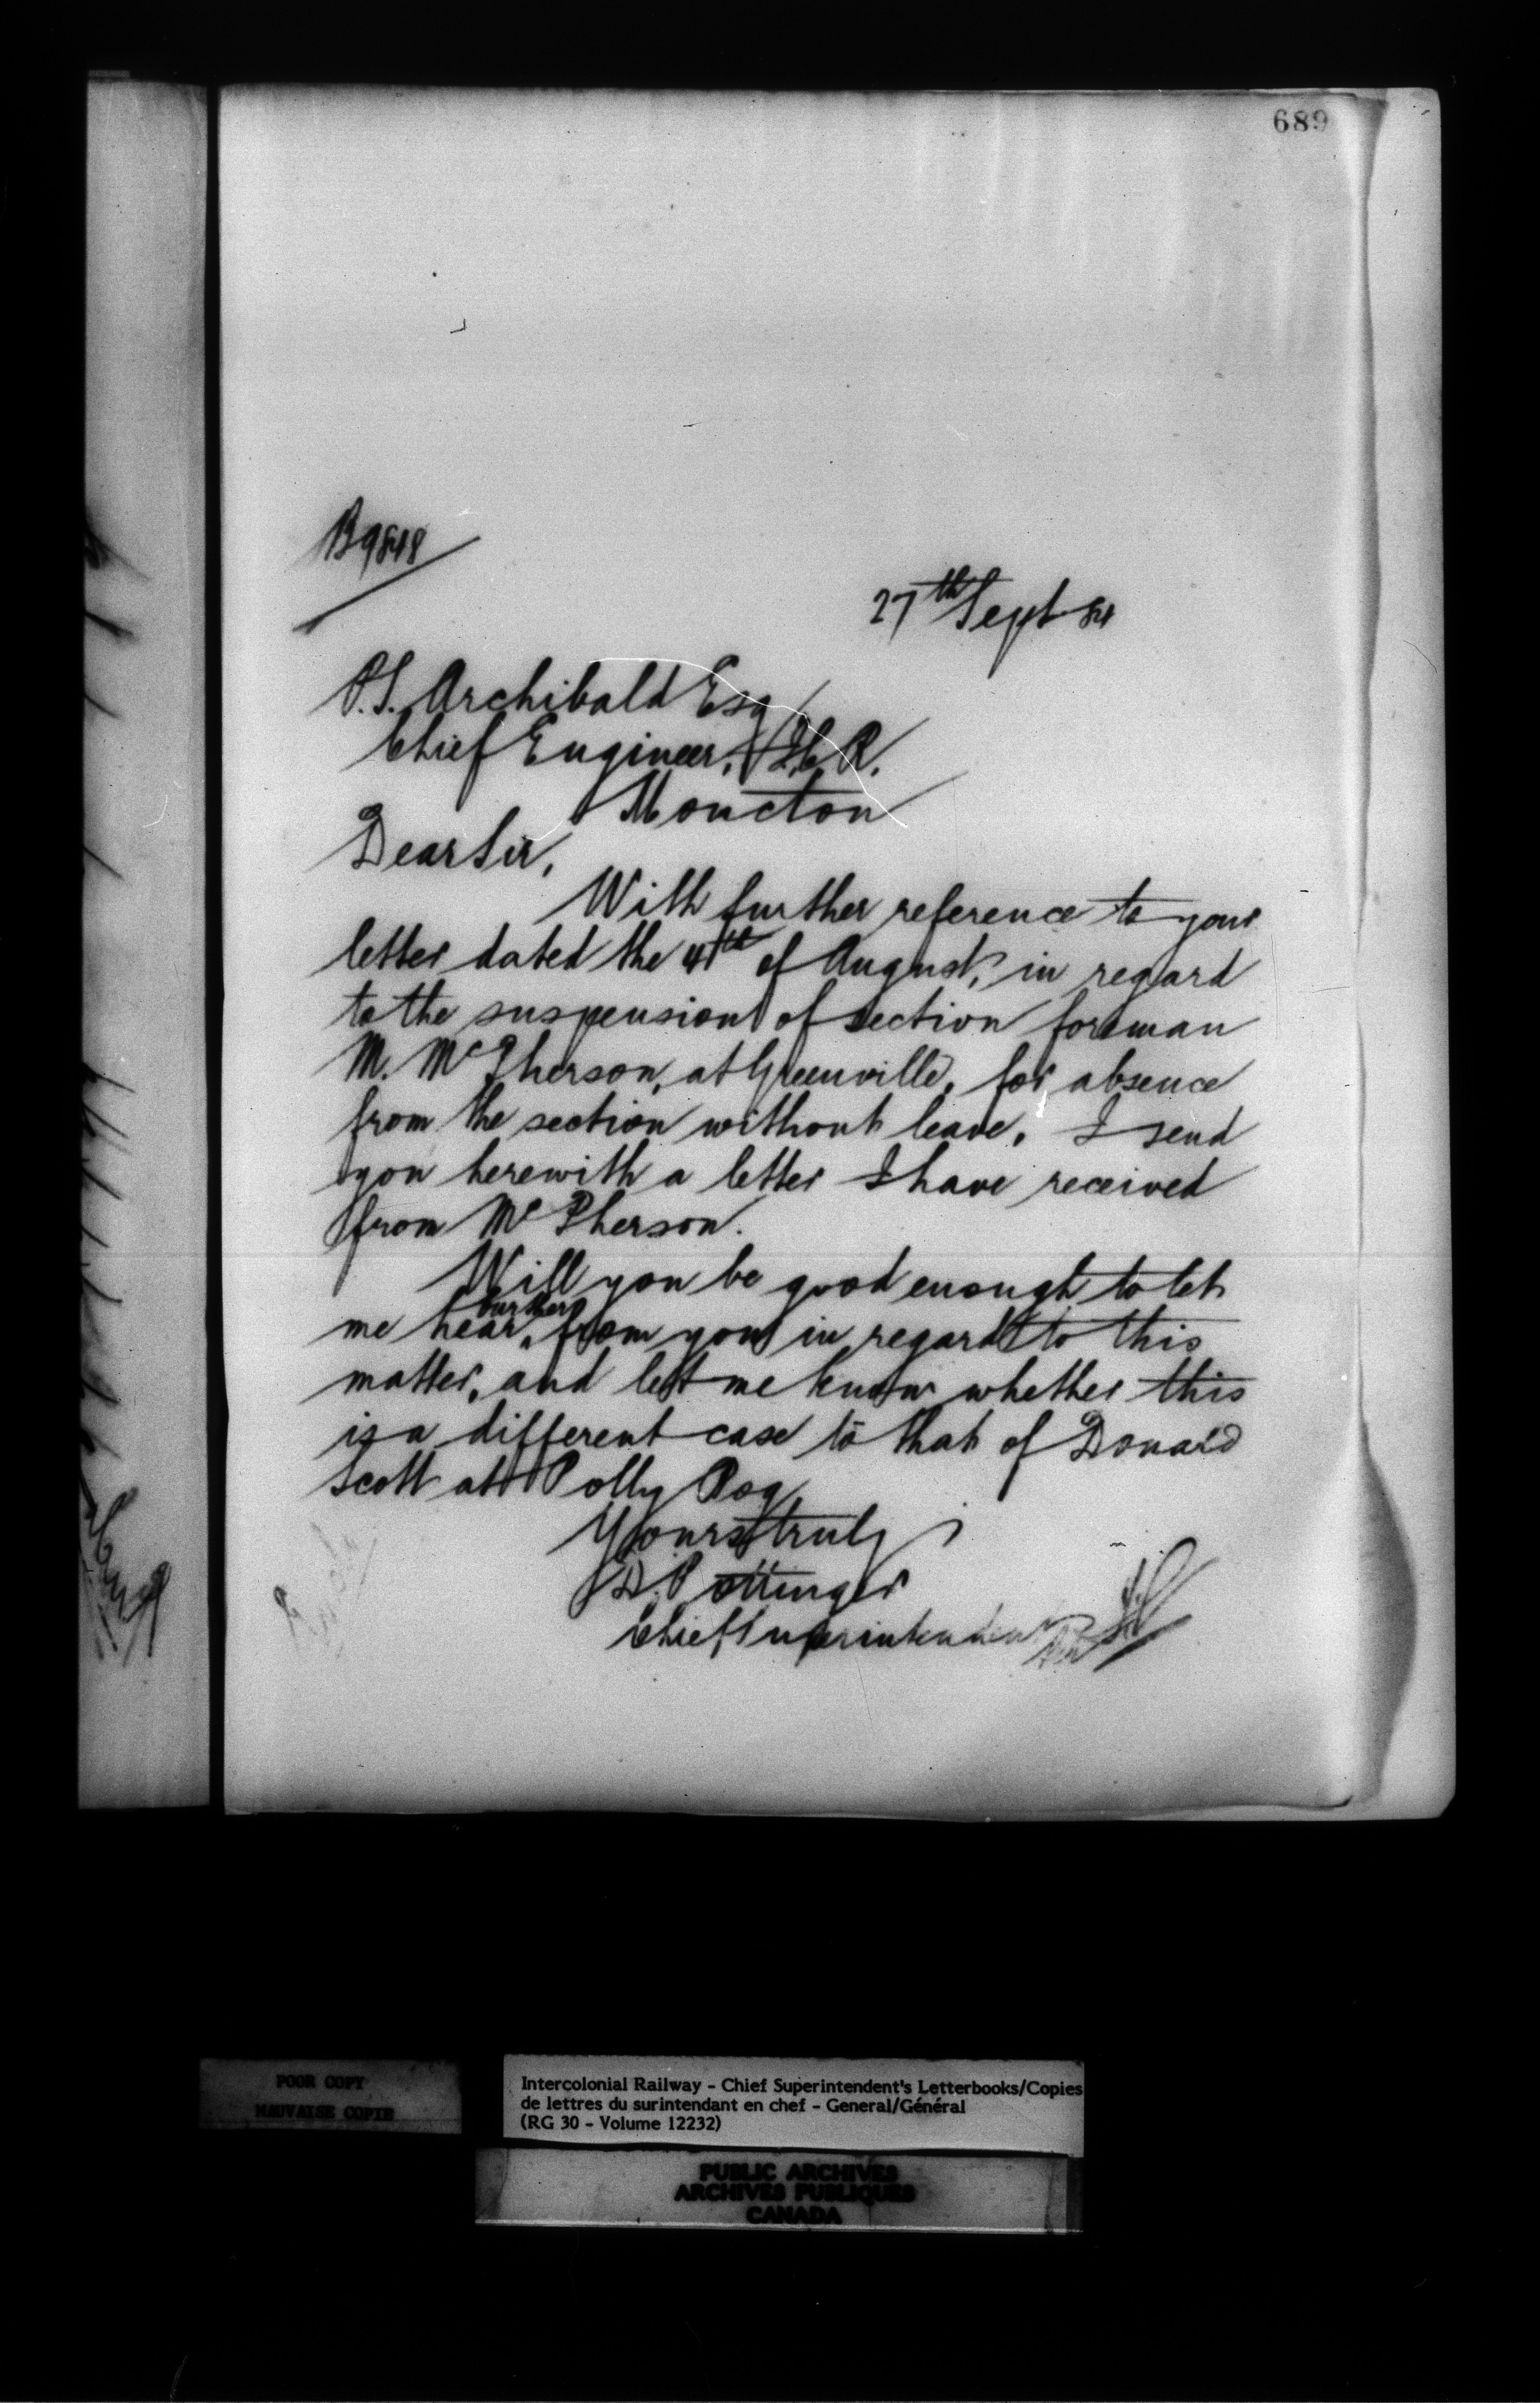 689
B9848
27th Sept 84
P.S. Archibald Esq
Chief Engineer, I.C.R.
Moncton
Dear Sir,
With further reference to your
letter dated the 4th of August, in regard
to the suspension of section foreman
M. McPherson, at Greenville, for absence
from the section without leave, I send
you herewith a letter I have received
from McPherson.
Will you be good enough to let
me hear further from you in regard to this
matter, and let me know whether this
is a different case to that of Donald
Scott at Polly Bog
Yours truly
D. Pottinger
Chief Superintendent
POOR COPY
MAUVAISE COPIE
Intercolonial Railway - Chief Superintendent's Letterbooks/Copies
de lettres du surintendant en chef - General/Général
(RG 30 - Volume 12232)
PUBLIC ARCHIVES
ARCHIVES PUBLIQUES
CANADA